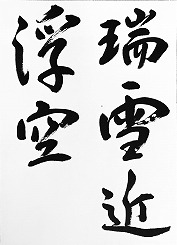 瑞雪近
浮空